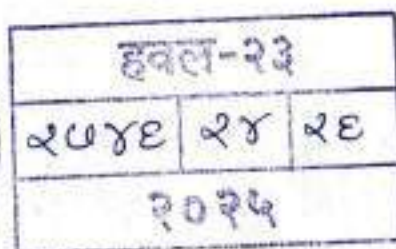 हवल-२३
२७४६ २४ २६
२०२५